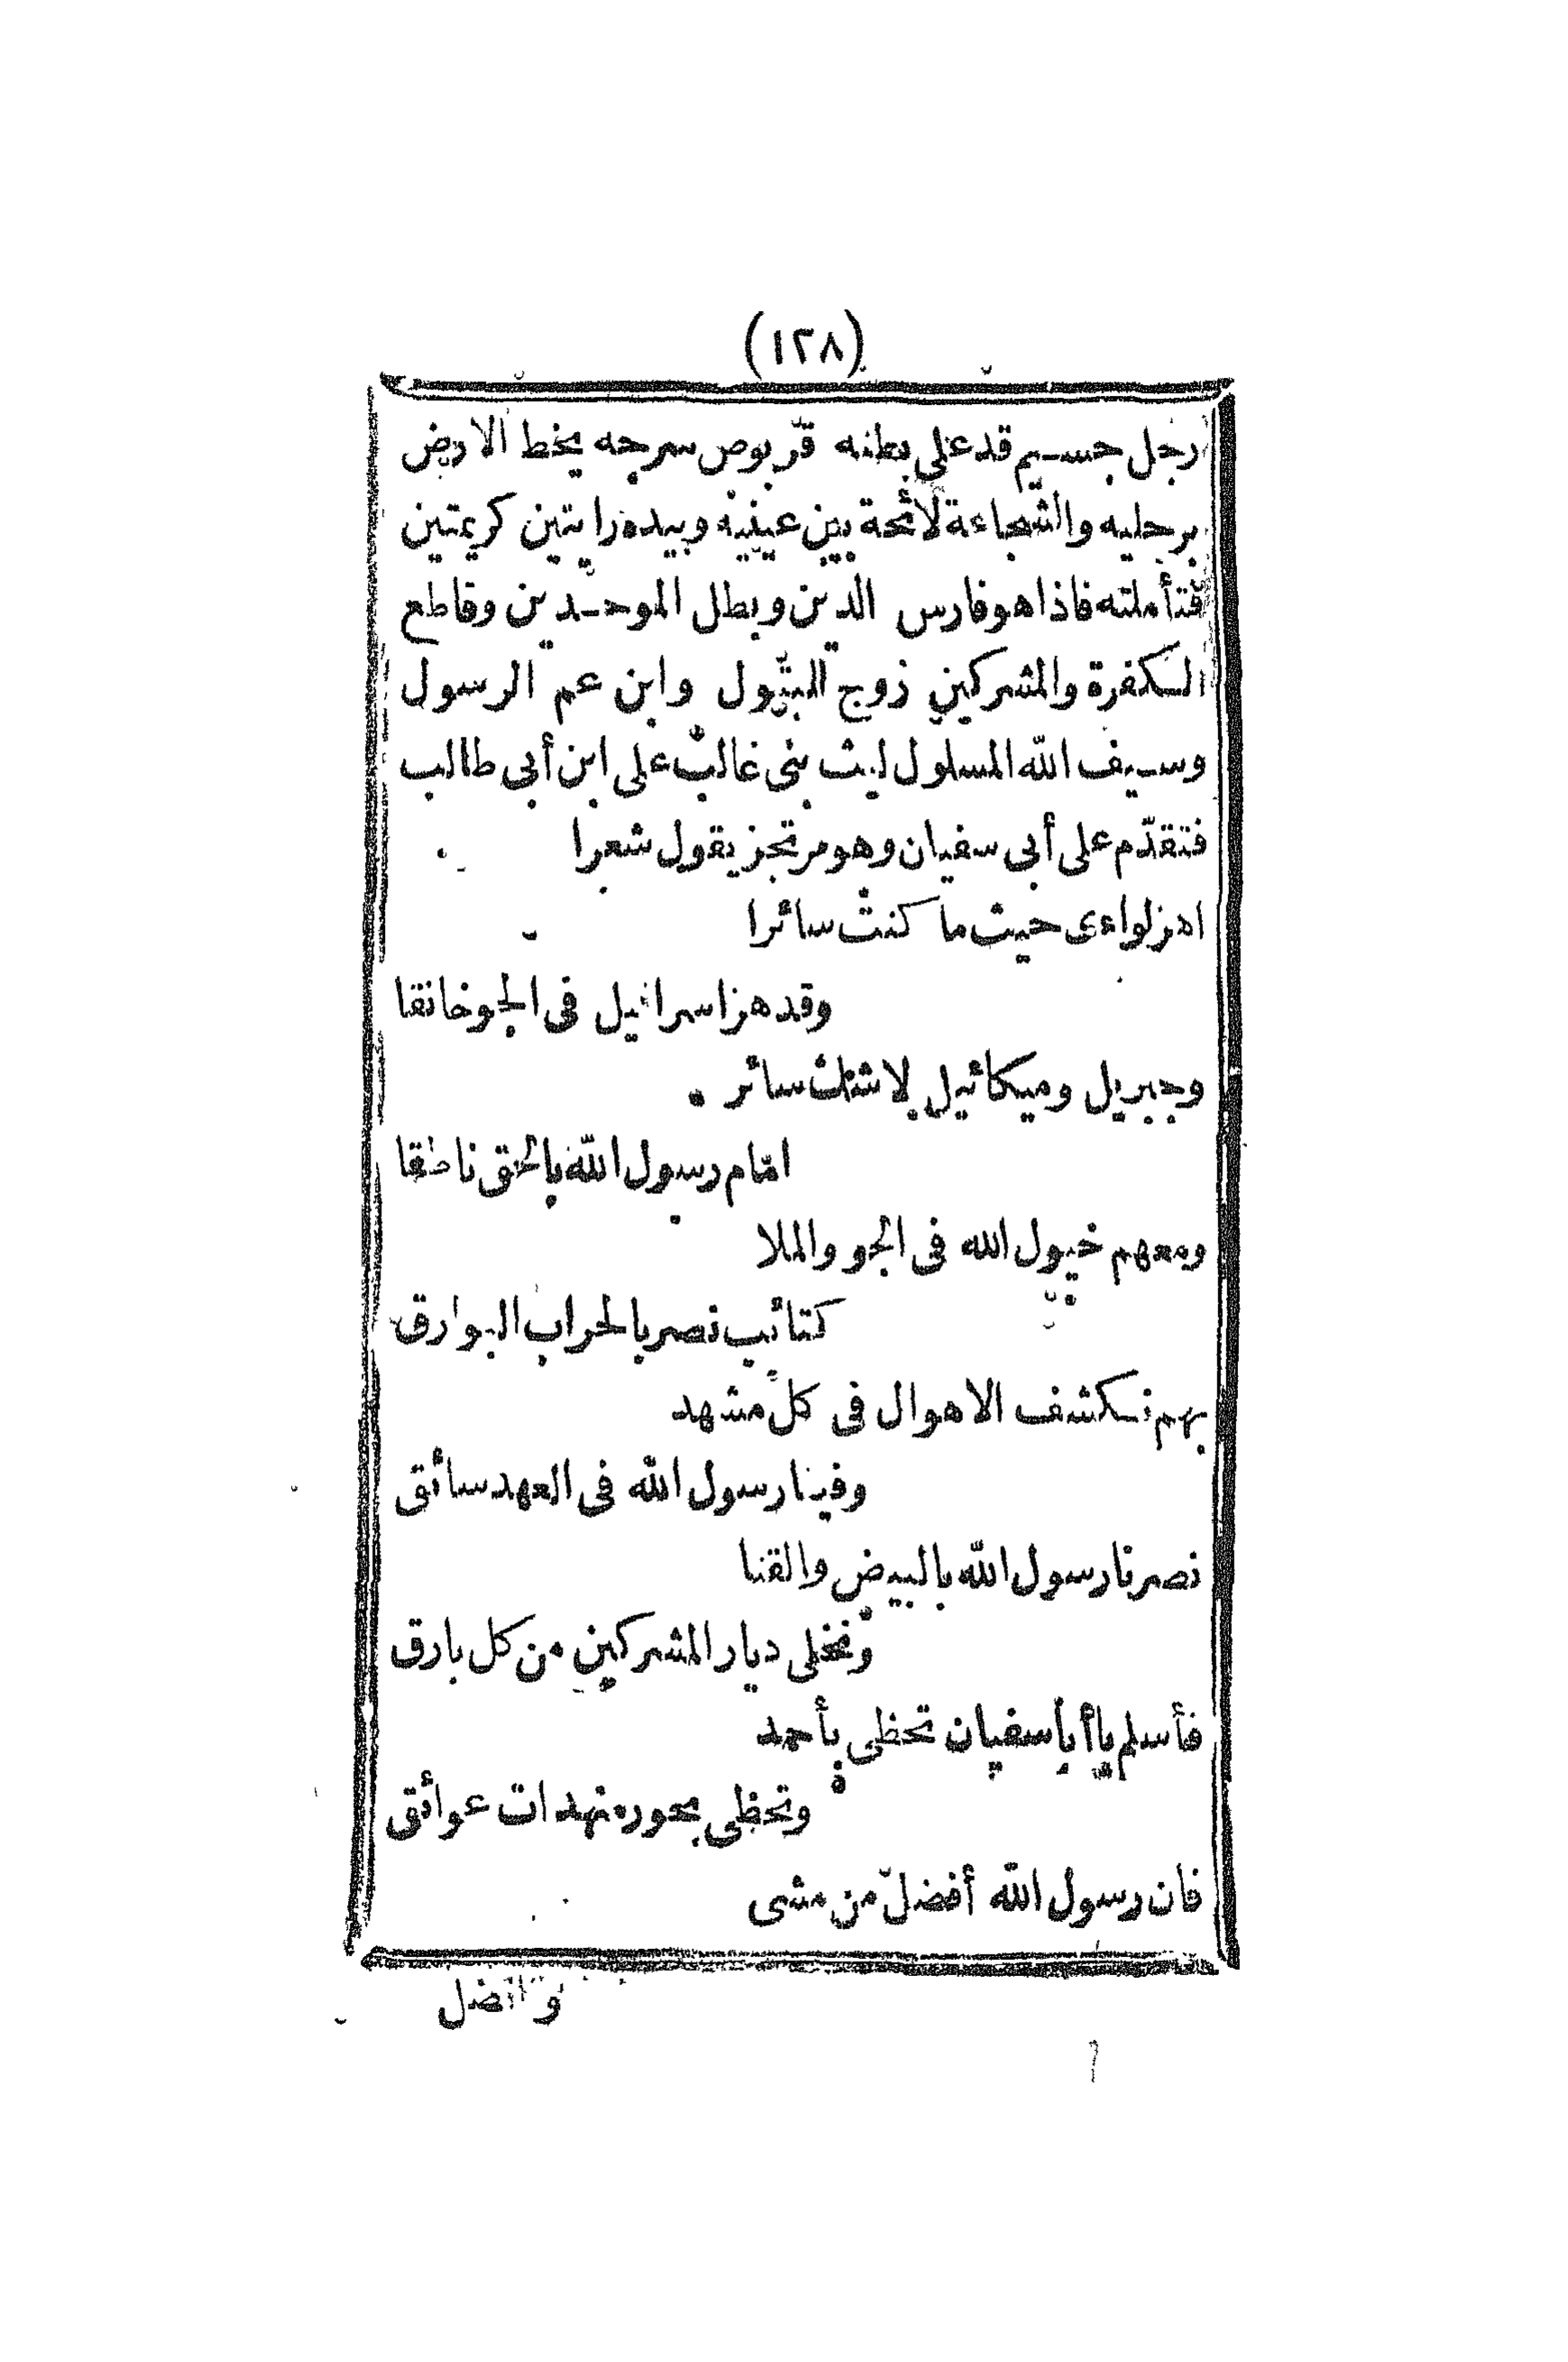 (١٢٨)
رجل جسيم قد على بطنه قربوص سرجه يخط الارض
برجليه والشجاعة لائحة بين عينيه وبيده رايتين كريمتين
فتأملته فاذا هو فارس الدين وبطل الموحدين وقاطع
الكفرة والمشركين زوج البتول وابن عم الرسول
وسيف الله المسلول ليث بنى غالب على ابن أبى طالب
فتقدّم على أبى سفيان وهو مرتجز يقول شعرا
اهز لواءى حيث ما كنت سائرا
وقد هز اسرافيل فى الجو خانقا
وجبريل وميكائيل لا شك سائر
امام رسول الله بالحق ناطقا
ومعهم خيول الله فى الجو والملا
كتائب نصر بالحراب البوارق
بهم نكشف الاهوال فى كل مشهد
وفينا رسول الله فى العهد سائق
نصرنا رسول الله بالبيض والقنا
ونخلى ديار المشركين من كل بارق
فأسلم ياأبا سفيان تحظى بأحمد
وتحظى بحور منهدات عوائق
فان رسول الله أفضل من مشى
وافضل